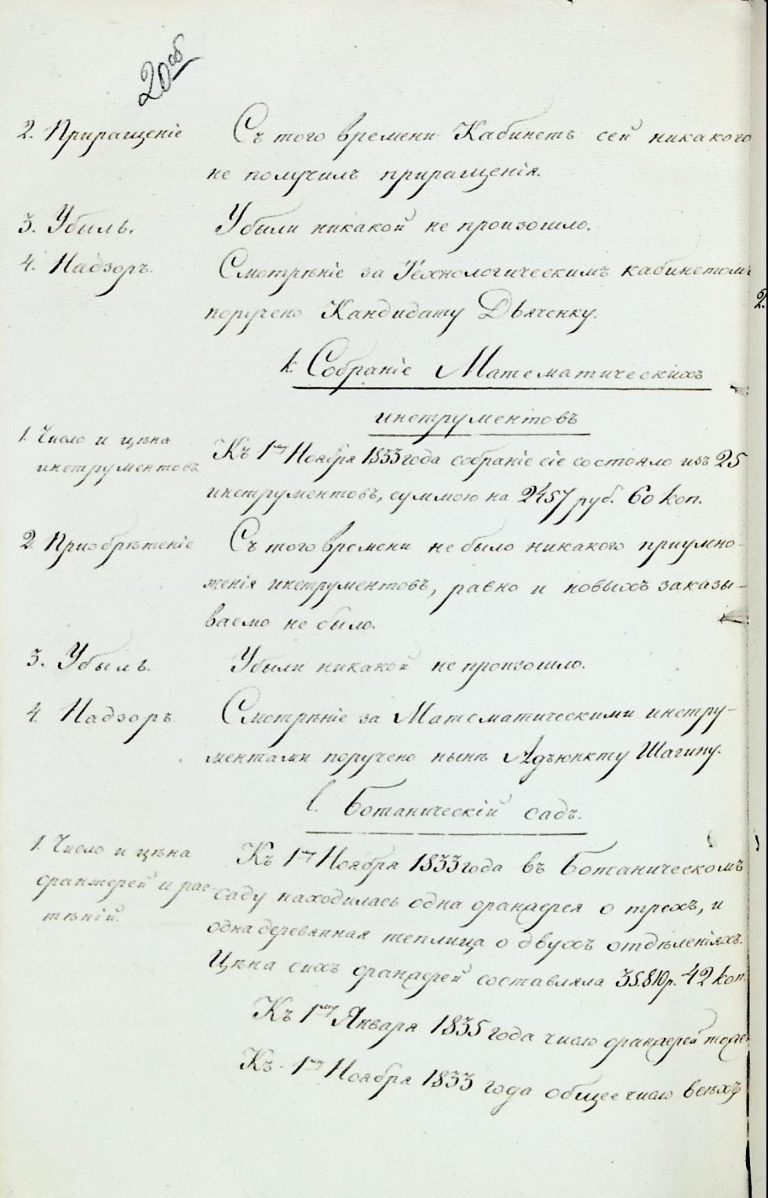 20 об
2. Приращеніе
Съ того времени Кабинетъ сей никакого
не получилъ приращенія.
3. Убыль.
Убыли никакой не произошло.
4. Надзоръ.
Смотрѣніе за Технологическимъ кабинетомъ
поручено Кандидату Дьяченку.
k. Собраніе Математическихъ
инструментовъ
1. Число и цѣна
инструментовъ
Къ 1му Ноября 1833 года собраніе сіе состояло изъ 25
инструментовъ, суммою на 2457 руб. 60 коп.
2. Приобрѣтеніе
Съ того времени не было никакого приумно-
женія инструментовъ, равно и новыхъ заказы-
ваемо не было.
3. Убыль.
Убыли никакой не произошло.
4. Надзоръ
Смотрѣніе за Математическими инстру-
ментами поручено нынѣ Адъюнкту Шагину.
l. Ботаническій садъ.
1. Число и цѣна
оранжерей и рас-
тѣній.
Къ 1му Ноября 1833 года въ Ботаническомъ
саду находилась одна оранжерея о трехъ, и
одна деревянная теплица о двухъ отдѣленіяхъ.
Цѣна сихъ оранжерей составляла 35.810 р. 42 коп.
Къ 1му Января 1835 года число оранжерей тоже
Къ 1му Ноября 1833 года общее число всѣхъ